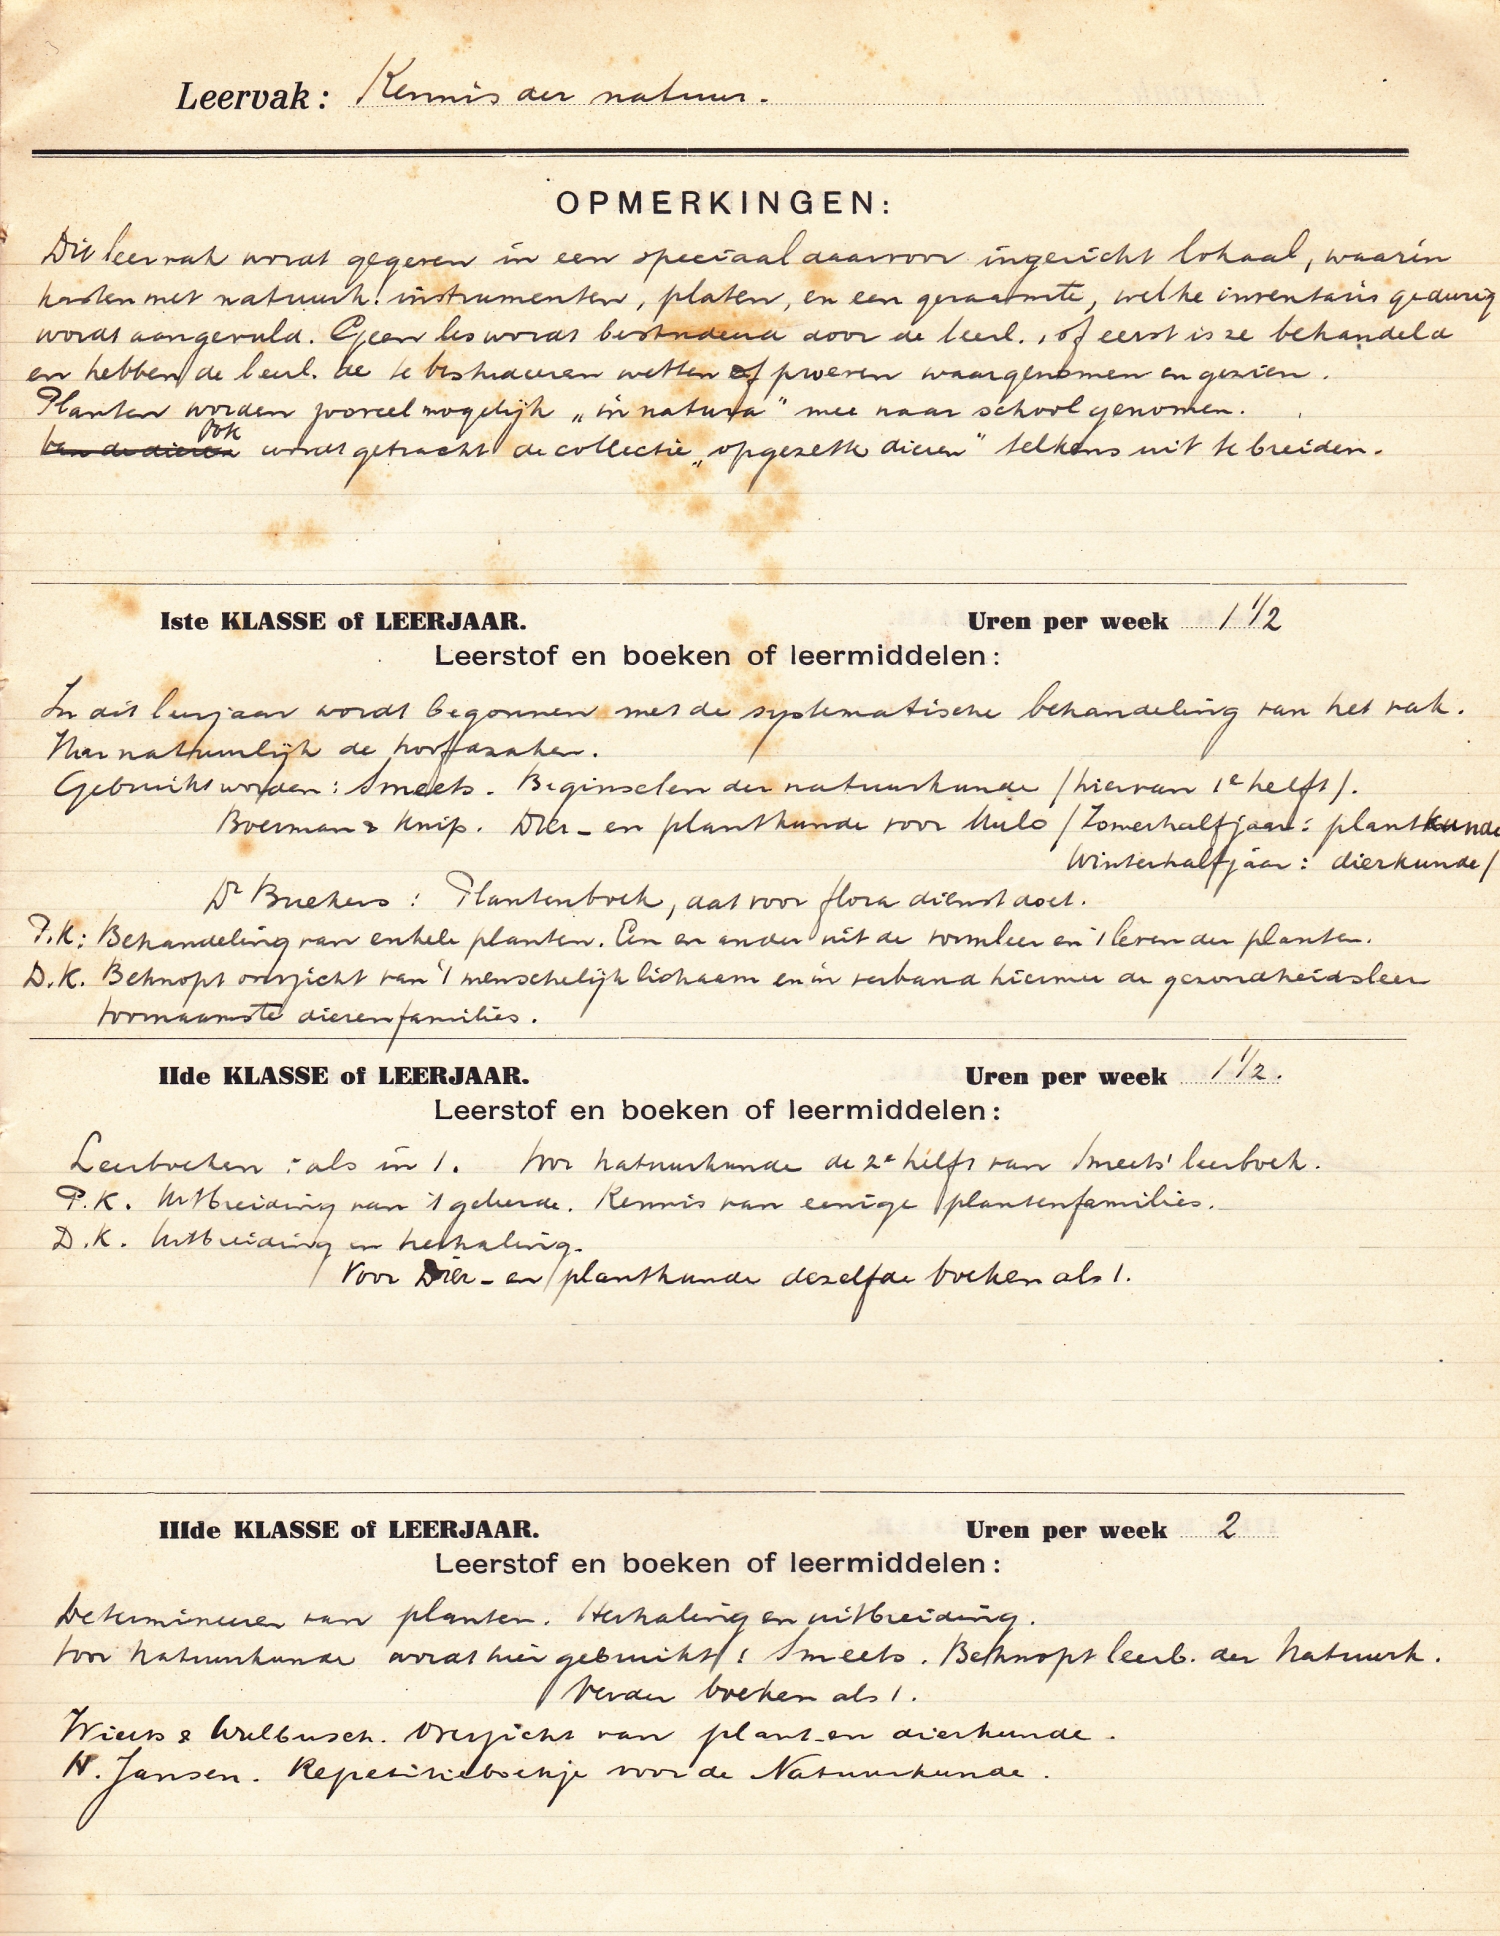 Leervak: Kennis der natuur.
OPMERKINGEN:
Dit leervak wordt gegeven in een speciaal daarvoor ingericht lokaal, waarin
kasten met natuurk. instrumenten, platen, en een geraamte, welke inventaris gedurig
wordt aangevuld. Geen les wordt bestudeerd door de leerl., of eerst is ze behandeld
en hebben de leerl. de te bestudeeren wetten of proeven waargenomen en gezien.
Planten worden zooveel mogelijk „in natura” mee naar school genomen.
Ook wordt getracht de collectie „opgezette dieren” telkens uit te breiden.
Iste KLASSE of LEERJAAR. Uren per week 1 1/2
Leerstof en boeken of leermiddelen:
In dit leerjaar wordt begonnen met de systematische behandeling van het vak.
Hier natuurlijk de hoofdzaken.
Gebruikt worden: Smeets. Beginselen der natuurkunde (hiervan 1e helft).
Boerman & Knip. Dier- en plantkunde voor Mulo (Zomerhalfjaar: plantkunde
Winterhalfjaar: dierkunde)
Dr Buekers: Plantenboek, dat voor flora dienst doet.
P.K: Behandeling van enkele planten. Een en ander uit de vormleer en 't leven der planten.
D.K. Beknopt overzicht van 't menschelijk lichaam en in verband hiermee de gezondheidsleer
voornaamste dierenfamilies.
IIde KLASSE of LEERJAAR. Uren per week 1 1/2.
Leerstof en boeken of leermiddelen:
Leerboeken: als in 1. Voor natuurkunde de 2e helft van Smeets' leerboek.
P.K. Uitbreiding van 't geleerde. Kennis van eenige plantenfamilies.
D.K. Uitbreiding en herhaling.
Voor Dier- en plantkunde dezelfde boeken als 1.
IIIde KLASSE of LEERJAAR. Uren per week 2
Leerstof en boeken of leermiddelen:
Determineeren van planten. Herhaling en uitbreiding.
Voor Natuurkunde wordt hier gebruikt: Smeets. Beknopt leerb. der Natuurk.
Verder boeken als 1.
& Overzicht van plant- en dierkunde.
H. Jansen. Repetitieboekje voor de Natuurkunde.